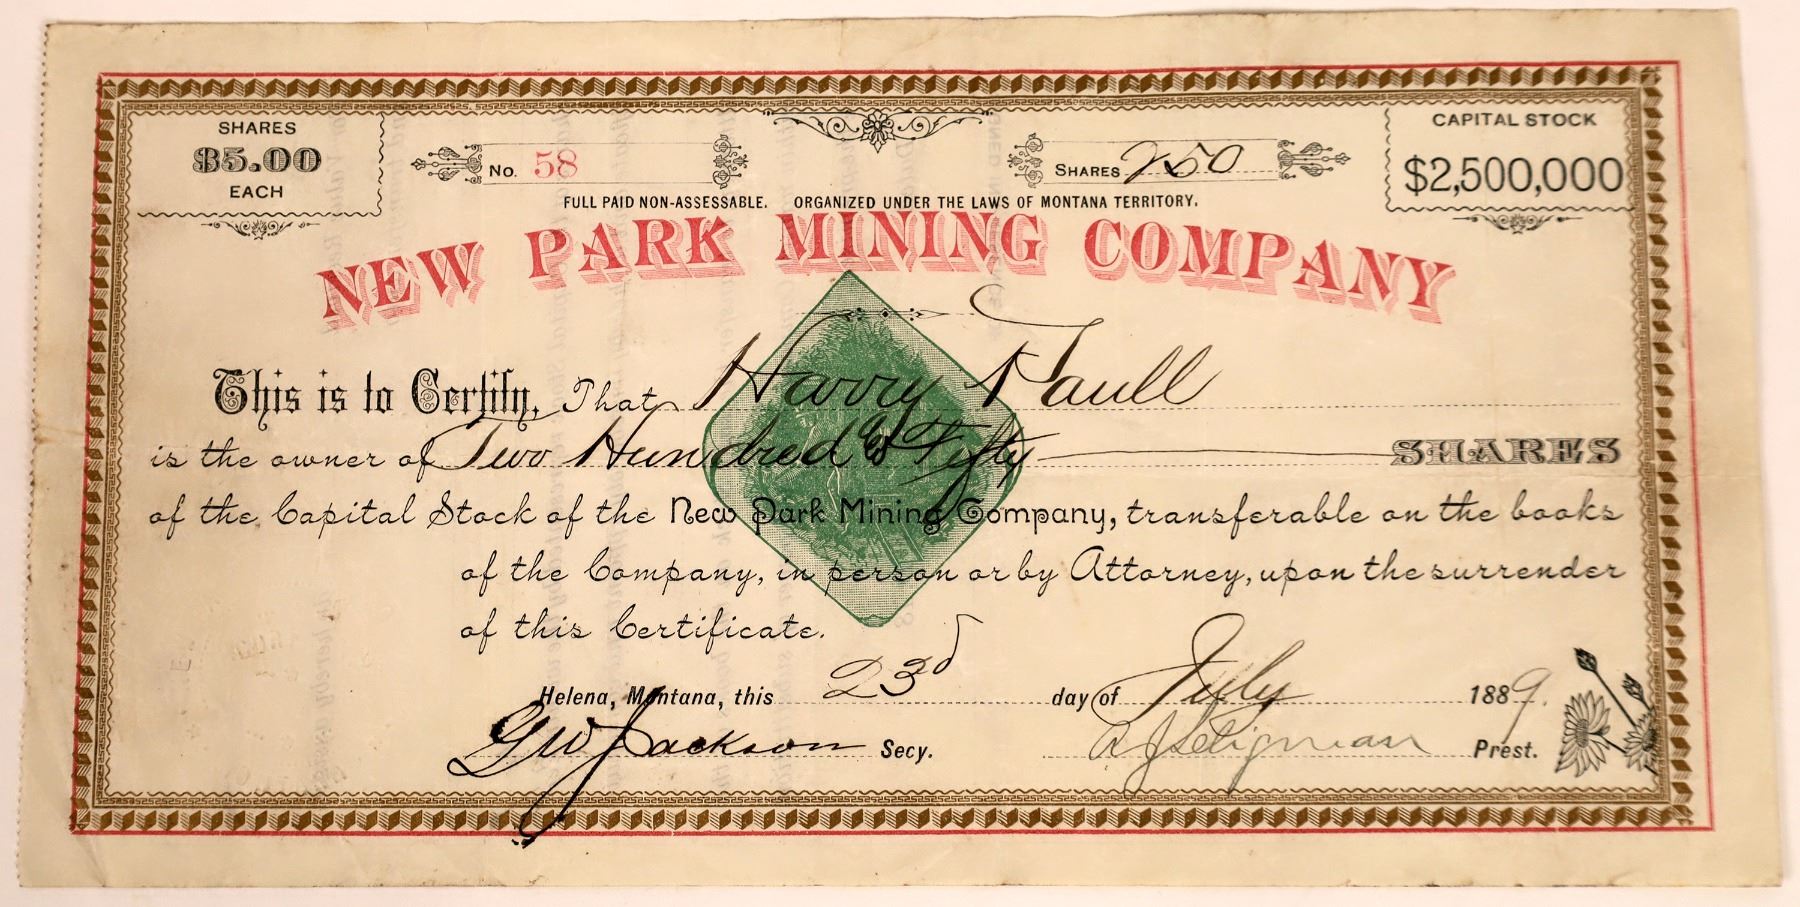 SHARES
$5.00
EACH
No. 58
SHARES 250
CAPITAL STOCK
$2,500,000
FULL PAID NON-ASSESSABLE. ORGANIZED UNDER THE LAWS OF MONTANA TERRITORY.
NEW PARK MINING COMPANY
This is to Certify, That Harry Paull
is the owner of Two Hundred & Fifty SHARES
of the Capital Stock of the New Park Mining Company, transferable on the books
of the Company, in person or by Attorney, upon the surrender
of this Certificate.
Helena, Montana, this 23d day of July 1889.
G W Jackson Secy. A J Seligman Prest.